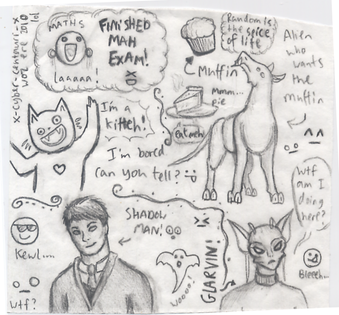 x-cyber-centauri-x
woz ere 2010
lol
MATHS
Laaaaa!
FINISHED
MAH
EXAM!
Random is
the spice
of life
Muffin
Alien
who
wants
the
muffin
Mmm...
pie
eat meh!
I'm a
kitteh!
I'm bored
can you tell?
Kewl...
wtf?
SHADOW
MAN!
woooo!
GLARVIN!
wtf
am I
doing
here?
Bleeeh...